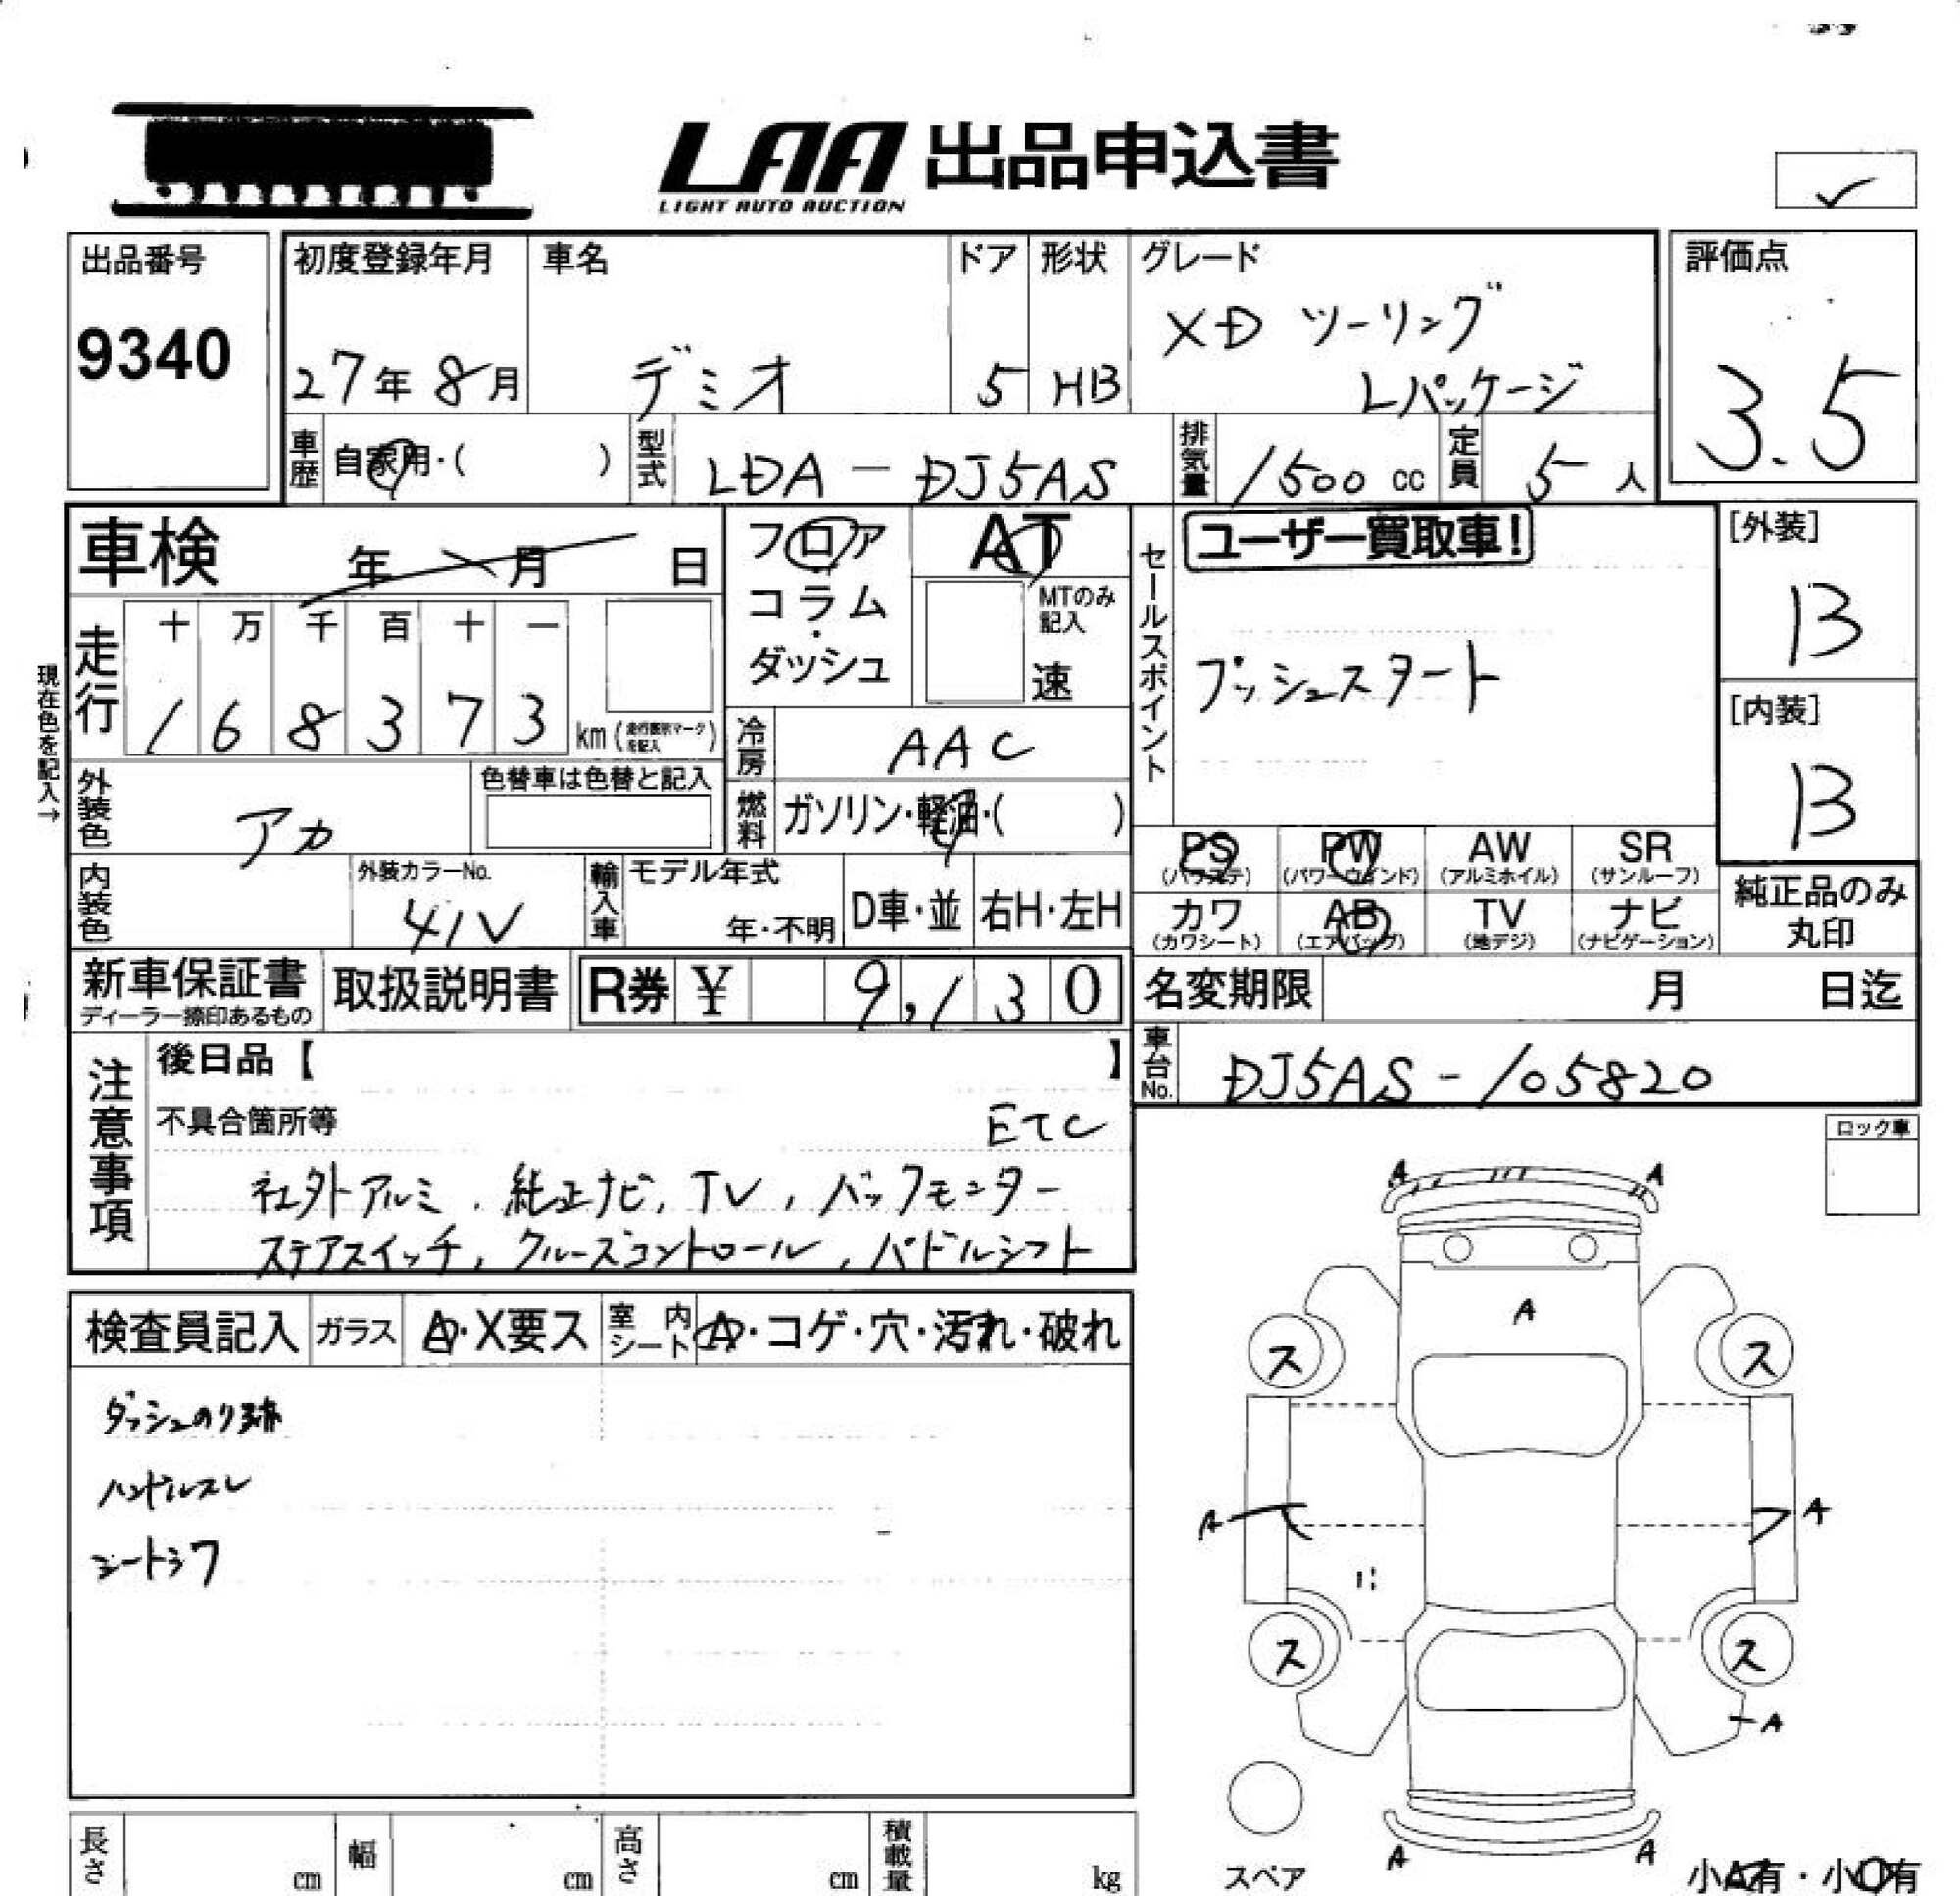 LAA 出品申込書
LIGHT AUTO AUCTION
出品番号
9340
初度登録年月
27年 8月
車名
デミオ
ドア
5
形状
HB
グレード
XD ツーリング
Lパッケージ
評価点
3.5
車歴
自家用・( )
型式
LDA - DJ5AS
排気量
1500 cc
定員
5 人
車検 年 月 日
フロア
コラム
・
ダッシュ
AT
MTのみ
記入
速
セールスポイント
ユーザー買取車!
プッシュスタート
[外装]
B
[内装]
B
現在色を記入→
走行
十 万 千 百 十 一
1 6 8 3 7 3
km
冷房
AAC
外装色
アカ
色替車は色替と記入
燃料
ガソリン・軽油・( )
内装色
外装カラーNo.
41V
輸入車
モデル年式
年・不明
D車・並
右H・左H
PS
(パワステ)
PW
(パワーウィンド)
AW
(アルミホイル)
SR
(サンルーフ)
カワ
(カワシート)
AB
(エアバッグ)
TV
(地デジ)
ナビ
(ナビゲーション)
純正品のみ
丸印
新車保証書
ディーラー捺印あるもの
取扱説明書
R券 ¥ 9,130
名変期限 月 日迄
車台No.
DJ5AS - 105820
注意事項
後日品【 】
不具合箇所等
ETC
社外アルミ、純正ナビ, TV, バックモニター
ステアスイッチ, クルーズコントロール, パドルシフト
ロック車
検査員記入
ガラス
A・X要ス
室内
シート
A・コゲ・穴・汚れ・破れ
ダッシュのり跡
ハンドルスレ
シートシワ
A A
A
ス ス
A A
ス ス
A
A A
スペア
小A有・小U有
長さ cm
幅 cm
高さ cm
積載量 kg